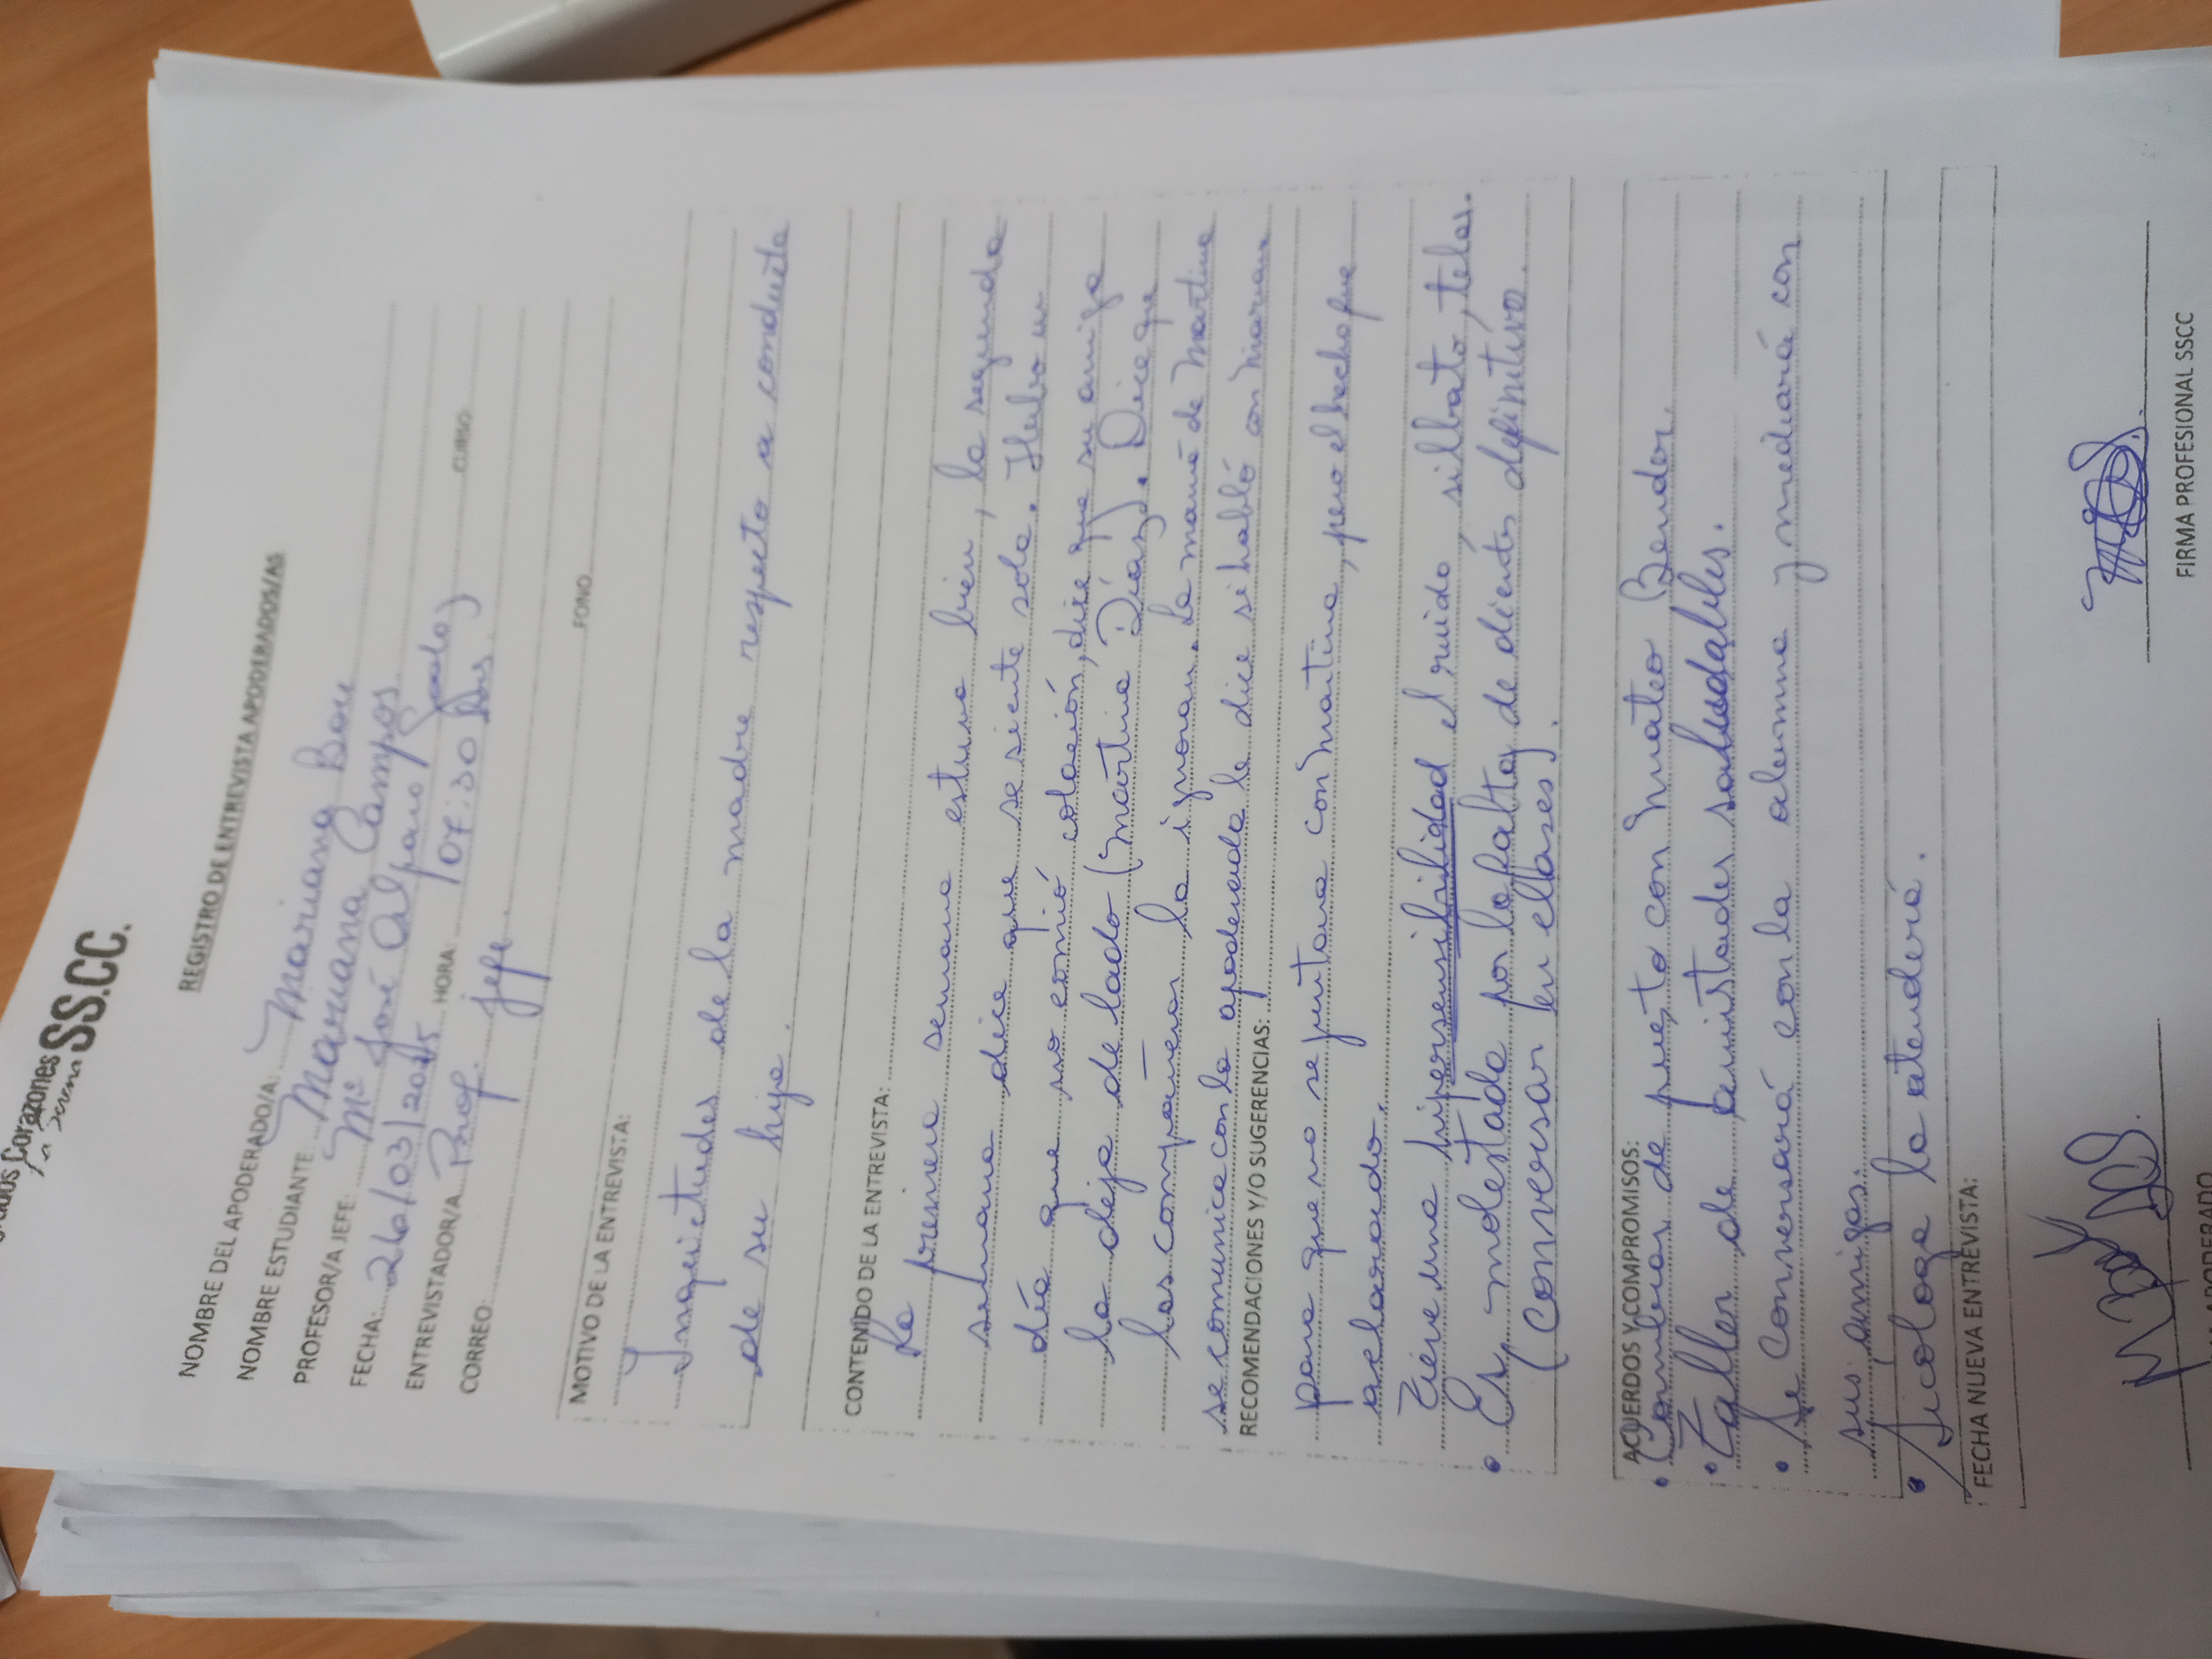 Corazones
La Serena
SS.CC.
REGISTRO DE ENTREVISTA APODERADOS/AS
NOMBRE DEL APODERADO/A: Mariana Bou
NOMBRE ESTUDIANTE Mariana Campos
PROFESOR/A JEFE: Mª José Alfaro
FECHA: 26/03/2025 HORA: 07:30 hrs CURSO:
ENTREVISTADOR/A Prof. jefe
CORREO: FONO
MOTIVO DE LA ENTREVISTA:
Inquietudes de la madre respecto a conducta
de su hija.
CONTENIDO DE LA ENTREVISTA:
La primera semana estuvo bien, la segunda
semana dice que se siente sola. Hubo un
día que no comió colación, dice que su amiga
la deja de lado (Martina Díaz). Dice que
las compañeras la ignoran. La mamá de Martina
se comunica con la apoderada le dice si habló con Mariana
RECOMENDACIONES Y/O SUGERENCIAS:
para que no se juntara con Martina, pero el hecho fue
aclarado.
Tiene una hipersensibilidad el ruido, silbato, telas.
• Es molestada por la falta de dientes definitivo.
(Conversar en clases).
ACUERDOS Y COMPROMISOS:
• Cambiar de puesto con Mateo Bender
• Taller de amistades saludables.
• Se conversará con la alumna y mediará con
sus amigas.
• Sicóloga la atenderá.
FECHA NUEVA ENTREVISTA:
FIRMA PROFESIONAL SSCC
APODERADO